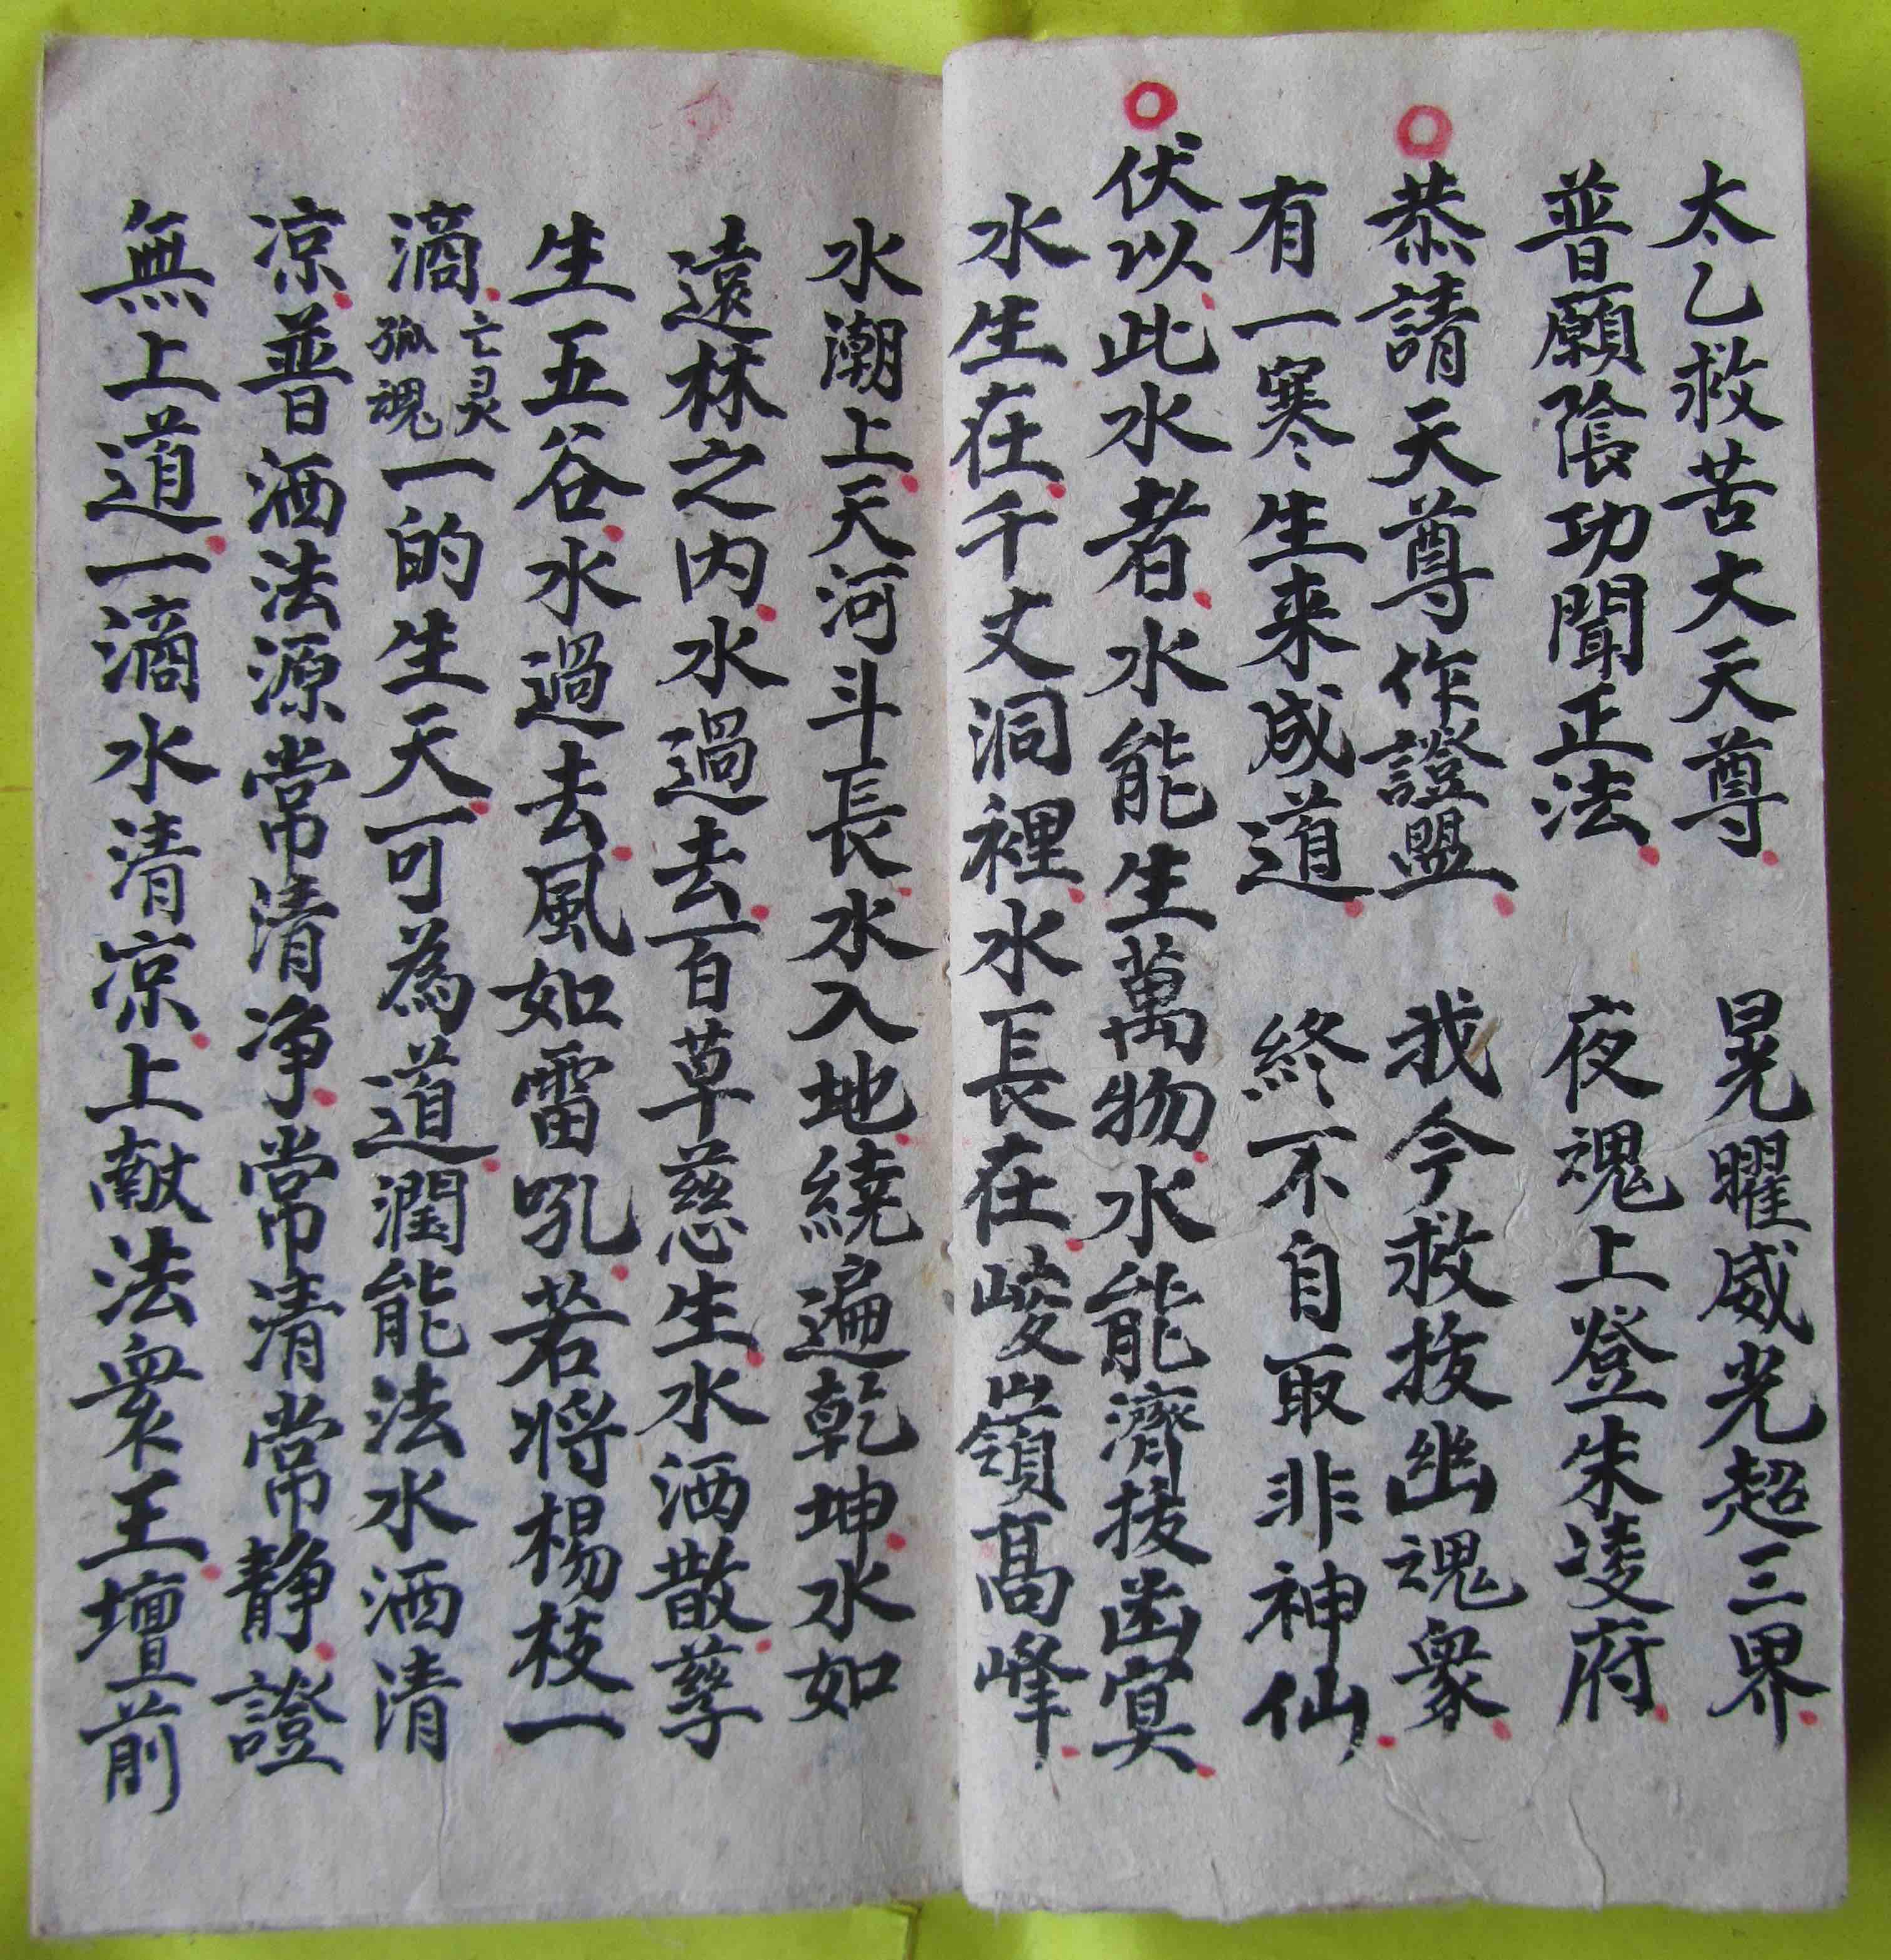 太乙救苦大天尊 晃曜威光超三界
普願陰功聞正法 夜魂上登朱凌府
恭請天尊作證盟 我今救拔幽魂衆
有一寒生来成道 終不自取非神仙
伏以此水者水能生萬物水能濟拔幽冥
水生在千丈洞裡水長在峻嶺髙峰
水潮上天河斗長水入地繞遍乾坤水如
遠林之内水過去百草慈生水洒散孳
生五谷水過去風如雷吼若将楊枝一
滴亡灵孤魂一的生天可為道潤能法水洒清
凉普洒法源常清净常清常静證
無上道一滴水清凉上献法衆王壇前